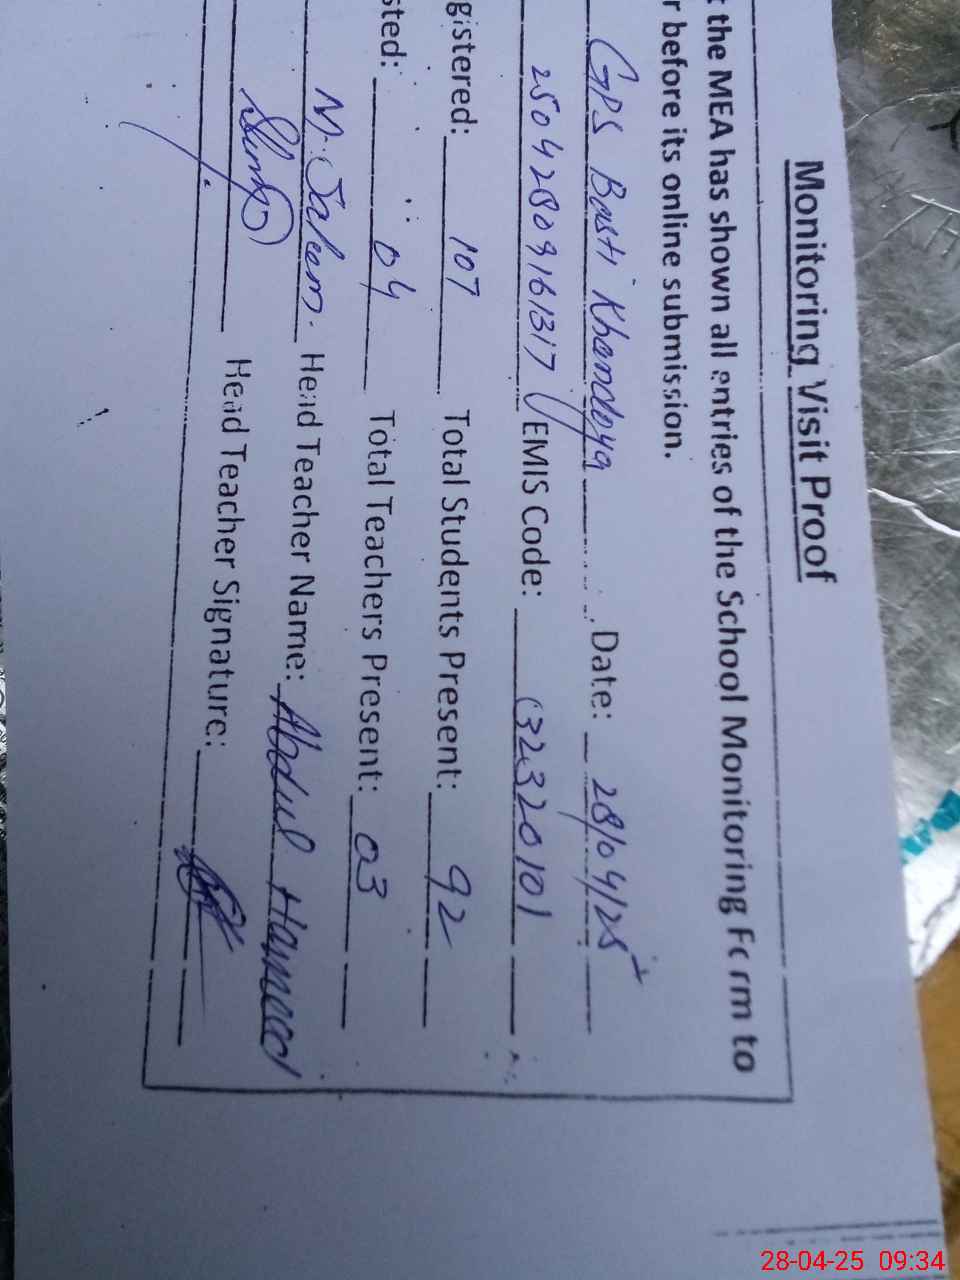 Monitoring Visit Proof
t the MEA has shown all entries of the School Monitoring Form to
r before its online submission.
GPS Basti Khandoya Date: 28/04/25
25042809161317 EMIS Code: 32320101
gistered: 107 Total Students Present: 92
sted: 04 Total Teachers Present: 03
M. Saleem. Head Teacher Name: Abdul Hameed
Head Teacher Signature:
28-04-25 09:34